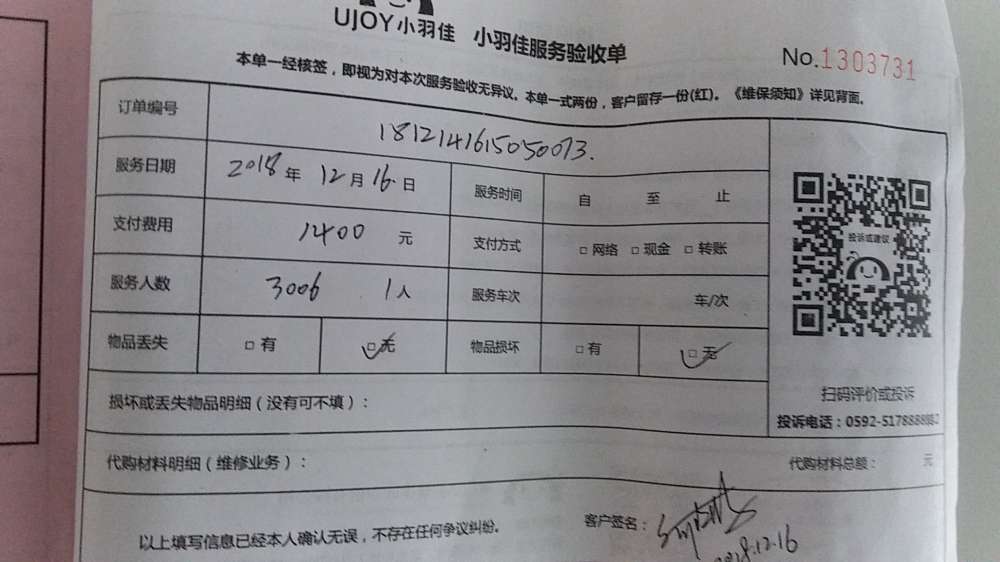 UJOY小羽佳 小羽佳服务验收单
No.1303731
本单一经核签，即视为对本次服务验收无异议。本单一式两份，客户留存一份(红)。《维保须知》详见背面。
订单编号 1812141615050073.
服务日期 2018年12月16日 服务时间 自 至 止
支付费用 1400 元 支付方式 □网络 □现金 □转账
服务人数 3006 1人 服务车次 车/次
物品丢失 □有 □无 物品损坏 □有 □无
投诉或建议
扫码评价或投诉
投诉电话：0592-5178888
损坏或丢失物品明细（没有可不填）：
代购材料明细（维修业务）： 代购材料总额： 元
以上填写信息已经本人确认无误，不存在任何争议纠纷。 客户签名：
2018.12.16